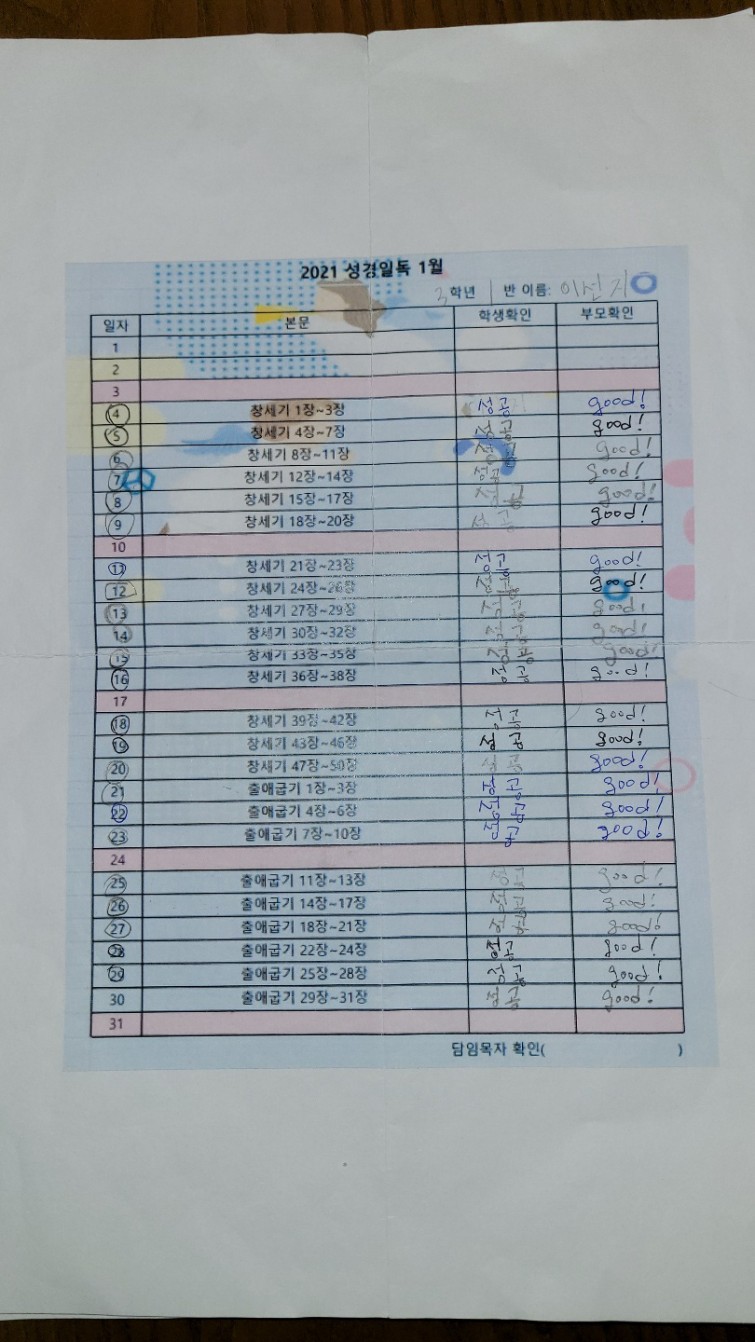 2021 성경일독 1월
3학년 1반 이름: 이선지
일자 본문 학생확인 부모확인
1
2
3
4 창세기 1장~3장 성공 good!
5 창세기 4장~7장 성공 good!
6 창세기 8장~11장 성공 good!
7 창세기 12장~14장 성공 good!
8 창세기 15장~17장 성공 good!
9 창세기 18장~20장 성공 good!
10
11 창세기 21장~23장 성공 good!
12 창세기 24장~26장 성공 good!
13 창세기 27장~29장 성공 good!
14 창세기 30장~32장 성공 good!
15 창세기 33장~35장 성공 good!
16 창세기 36장~38장 성공 good!
17
18 창세기 39장~42장 성공 good!
19 창세기 43장~46장 성공 good!
20 창세기 47장~50장 성공 good!
21 출애굽기 1장~3장 성공 good!
22 출애굽기 4장~6장 성공 good!
23 출애굽기 7장~10장 성공 good!
24
25 출애굽기 11장~13장 성공 good!
26 출애굽기 14장~17장 성공 good!
27 출애굽기 18장~21장 성공 good!
28 출애굽기 22장~24장 성공 good!
29 출애굽기 25장~28장 성공 good!
30 출애굽기 29장~31장 성공 good!
31
담임목자 확인( )